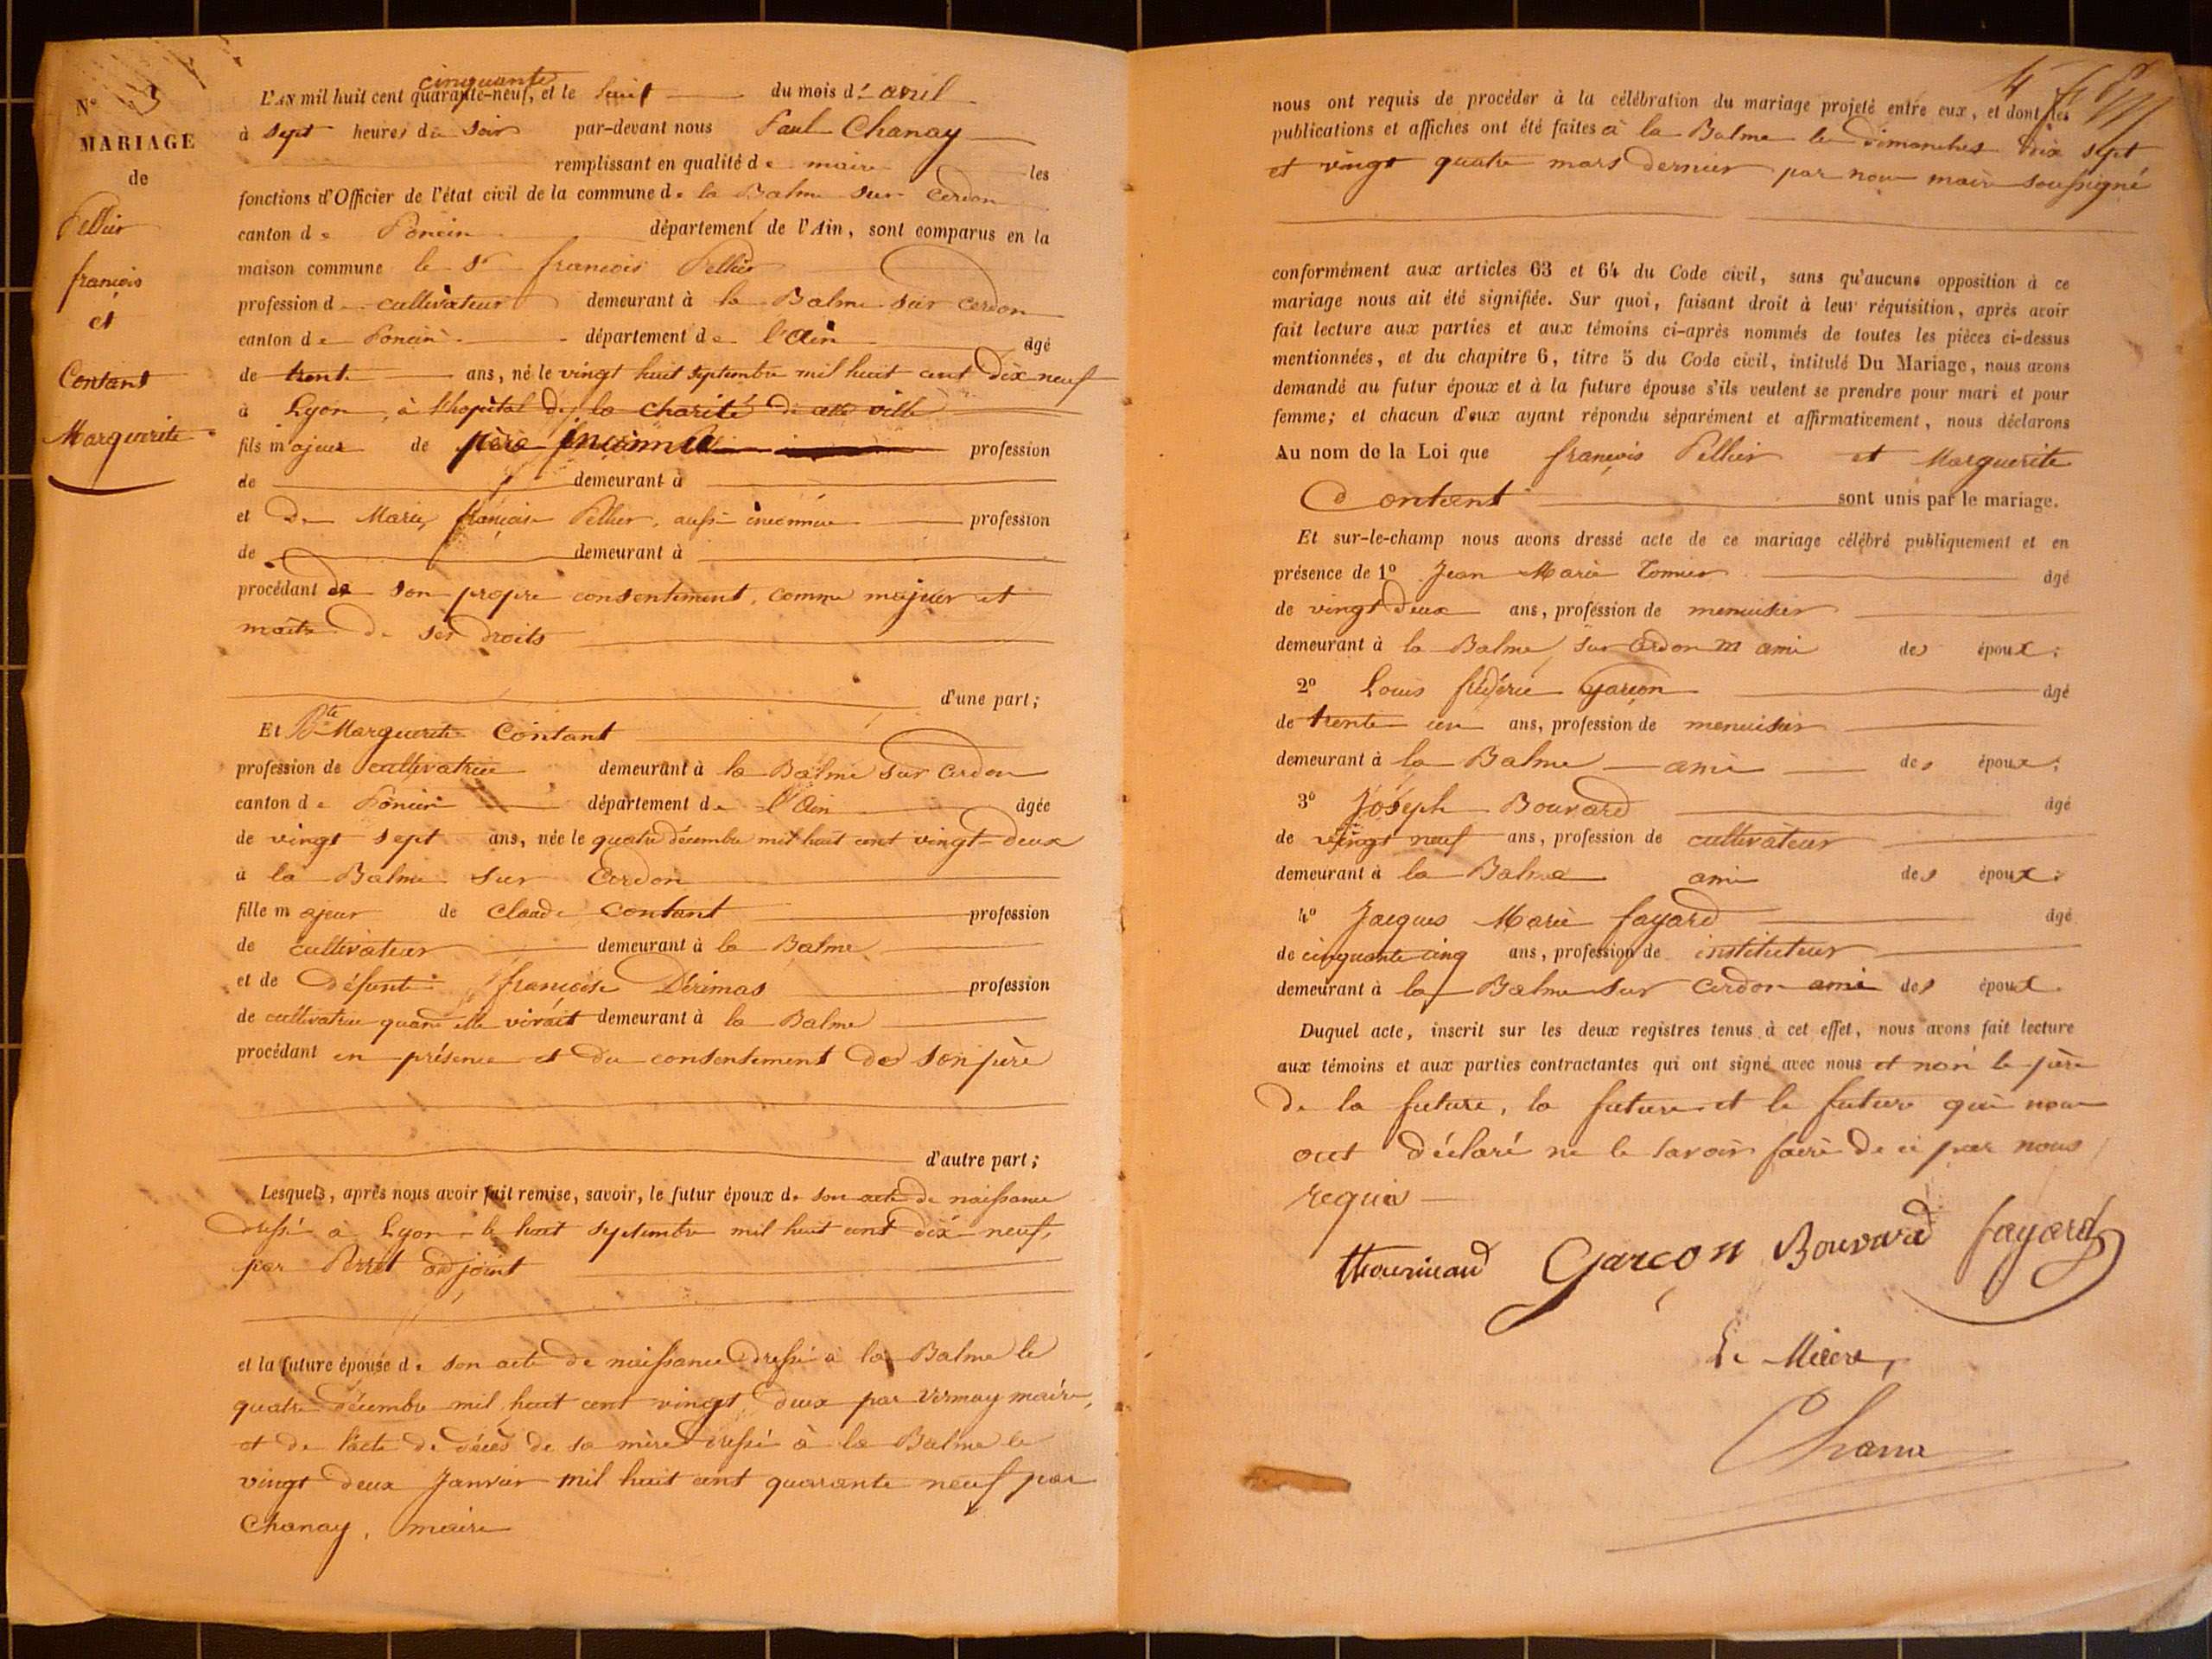 N° 3
MARIAGE
de
Pellier
françois
et
Contant
Marguerite
cinquante
L'AN mil huit cent quarante-neuf, et le huit du mois d' avril
à sept heures du soir par-devant nous Paul Chanay
remplissant en qualité de maire les
fonctions d'Officier de l'état civil de la commune de la Balme sur Cerdon
canton de Poncin département de l'Ain, sont comparus en la
maison commune le Sr françois Pellier
profession de cultivateur demeurant à la Balme sur Cerdon
canton de Poncin département de l'Ain âgé
de trente ans, né le vingt huit septembre mil huit cent dix neuf
à Lyon, à l'hopital de la charité de cette ville
fils majeur de père inconnu profession
de demeurant à
et de Marie françoise Pellier, aussi inconnue profession
de demeurant à
procédant de son propre consentement, comme majeur et
maitre de ses droits
d'une part;
Et Dte Marguerite Contant
profession de cultivatrice demeurant à la Balme sur Cerdon
canton de Poncin département de l'Ain âgée
de vingt sept ans, née le quatre décembre mil huit cent vingt-deux
à la Balme sur Cerdon
fille majeur de Claude Contant profession
de cultivateur demeurant à la Balme
et de défunte françoise Dérimas profession
de cultivatrice quand elle vivait demeurant à la Balme
procédant en présence et du consentement de son père
d'autre part;
Lesquels, après nous avoir fait remise, savoir, le futur époux de son acte de naissance
dressé à Lyon le huit septembre mil huit cent dix-neuf,
par Perret adjoint
et la future épouse de son acte de naissance dressé à la Balme le
quatre décembre mil huit cent vingt deux par Vernay maire,
et de l'acte de décès de sa mère dressé à la Balme le
vingt deux Janvier mil huit cent quarante neuf par
Chanay, maire
4
nous ont requis de procéder à la célébration du mariage projeté entre eux, et dont les
publications et affiches ont été faites à la Balme les dimanches dix sept
et vingt quatre mars dernier par nous maire soussigné
conformément aux articles 63 et 64 du Code civil, sans qu'aucune opposition à ce
mariage nous ait été signifiée. Sur quoi, faisant droit à leur réquisition, après avoir
fait lecture aux parties et aux témoins ci-après nommés de toutes les pièces ci-dessus
mentionnées, et du chapitre 6, titre 5 du Code civil, intitulé Du Mariage, nous avons
demandé au futur époux et à la future épouse s'ils veulent se prendre pour mari et pour
femme; et chacun d'eux ayant répondu séparément et affirmativement, nous déclarons
Au nom de la Loi que françois Pellier et Marguerite
Contant sont unis par le mariage.
Et sur-le-champ nous avons dressé acte de ce mariage célébré publiquement et en
présence de 1° Jean Marie âgé
de vingt deux ans, profession de menuisier
demeurant à la Balme sur Cerdon ami des époux;
2° Louis frédéric Garçon âgé
de trente un ans, profession de menuisier
demeurant à la Balme ami des époux;
3° Joseph Bouvard âgé
de vingt neuf ans, profession de cultivateur
demeurant à la Balme ami des époux;
4° Jacques Marie fayard âgé
de cinquante cinq ans, profession de instituteur
demeurant à la Balme sur Cerdon ami des époux.
Duquel acte, inscrit sur les deux registres tenus à cet effet, nous avons fait lecture
aux témoins et aux parties contractantes qui ont signé avec nous et non le père
de la future, la future et le futur qui nous
ont déclaré ne le savoir faire de ce par nous
requis
Garçon Bouvard fayard
Le Maire,
Chanay